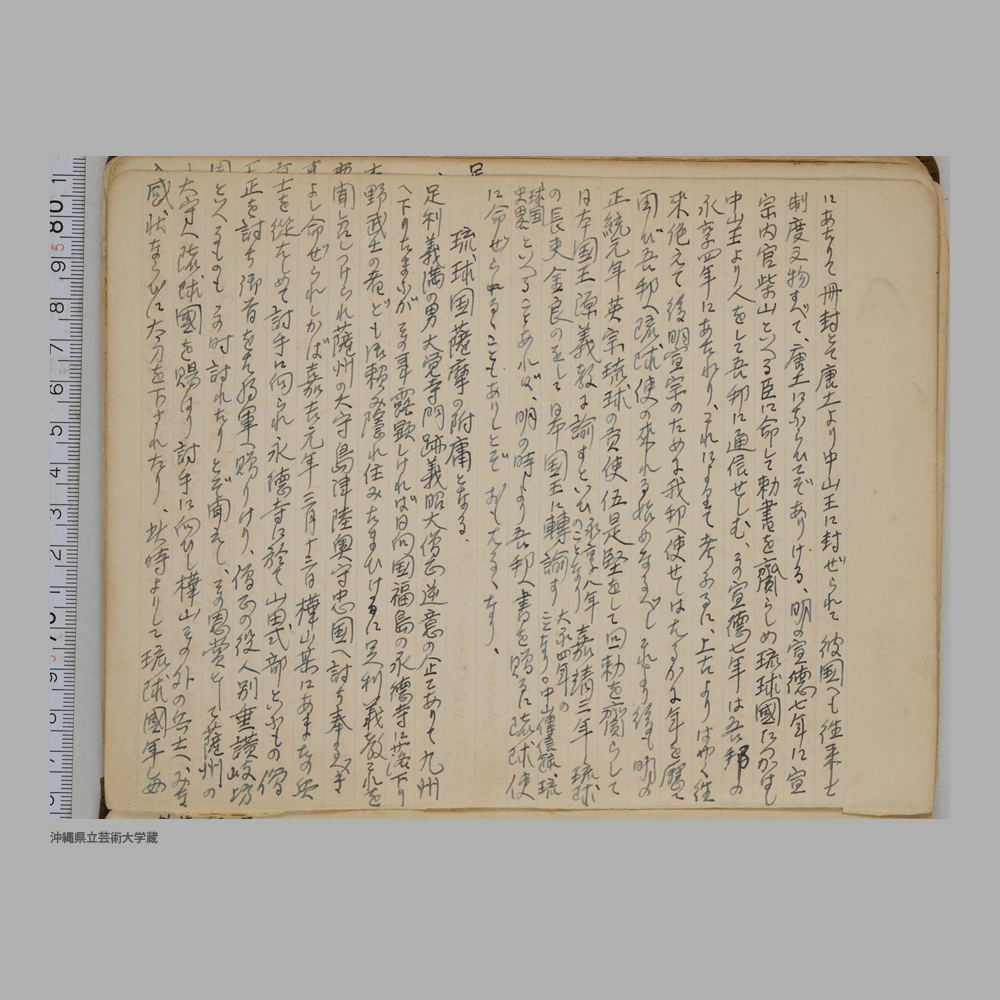 にありて冊封とて唐土より中山王に封ぜられて彼国へも往来し
制度文物すべて、唐土にならひてぞありける、明の宣徳七年に宣
宗内官柴山といへる臣に命して勅書を齎らしめ琉球國につかはし
中山王より人をして吾邦に通信せしむ、その宣徳七年は吾邦の
永享四年にあたれり、これによりて考ふるに、上古よりはやく往
来絶えて後明宣宗のために我邦へ使せしははるかに年を歴て
再び吾邦へ琉球使の来れる始めなるべしそれより後も明の
正統元年英宗琉球の貢使伍是堅をして回勅を齎らして
日本国王源義教に諭すといひ永享八年のことなり嘉靖三年琉球
の長吏金良のをして日本国王に轉諭す大永四年のことなり○中山傳信録、琉
球国史畧といへることあれば、明の時より吾邦へ書を贈るに琉球使
に命ぜられることもありしとぞおもはるゝなり、
琉球国薩摩の附庸となる.
足利義満の男大覚寺門跡義昭大僧正逆意の企ありて九州
へ下りたまふがその事露顕しければ日向国福島の永徳寺に落下り
野武士の者ども依頼み隠れ住みたまひけるに足利義教これを
聞召しつけられ薩州の大守島津陸奥守忠国へ討ち奉るべき
よし命ぜられしかば嘉吉元年三月十三日樺山某にあまたの兵
士を従はしめて討手に向られ永徳寺に於て山田式部といふもの僧
正を討ち御首をば将軍へ贈りけり、僧正の役人別垂讃岐坊
といへるものもその時討れたりとぞ聞えし、その恩賞として薩州の
大守へ琉球國を賜はり討手に向ひし樺山その外の兵士へみな
感状ならびに太刀を下されたり、此時よりして琉球國年毎
沖縄県立芸術大学蔵